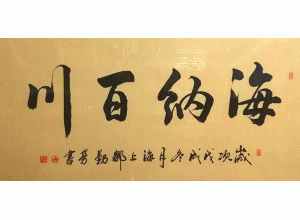 海纳百川
歲次戊戌冬月海上鄭勤芳書